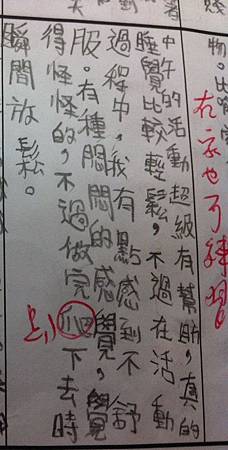 物。比
在家也可練習
中午的活動超級有幫助,真的
睡覺比較輕鬆,不過在活動
過程中,我有點感到不舒
服。有種悶悶的感覺,覺
得怪怪的,不過做完下去時
瞬間放鬆。